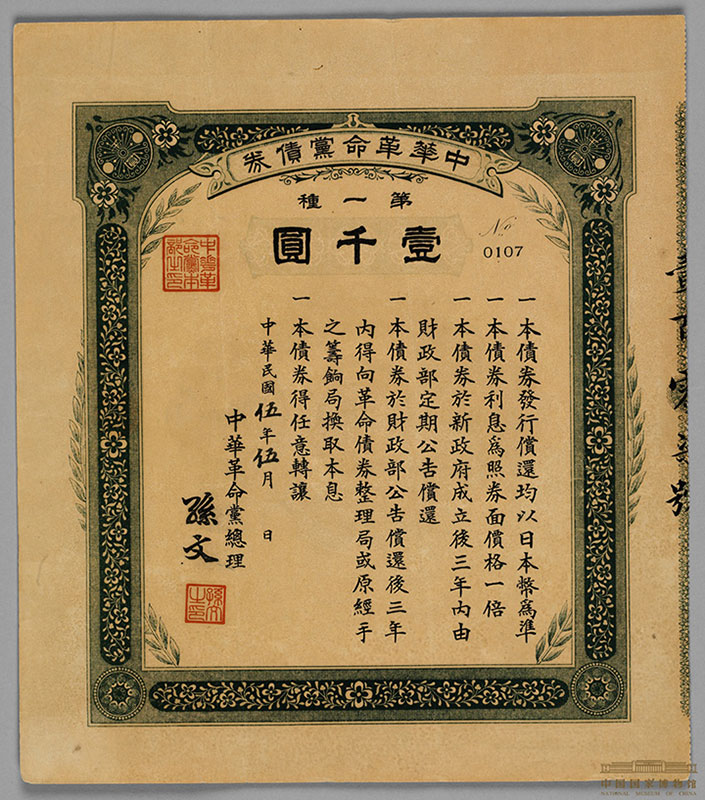 中華革命黨債券
第一種
壹千圓
No
0107
一本債券發行償還均以日本幣爲準
一本債券利息爲照券面價格一倍
一本債券於新政府成立後三年內由
財政部定期公告償還
一本債券於財政部公告償還後三年
內得向革命債券整理局或原經手
之籌餉局換取本息
一本債券得任意轉讓
中華民國伍年伍月 日
中華革命黨總理
孫文
中華革命黨本部之印
孫文之印
中国国家博物馆
NATIONAL MUSEUM OF CHINA